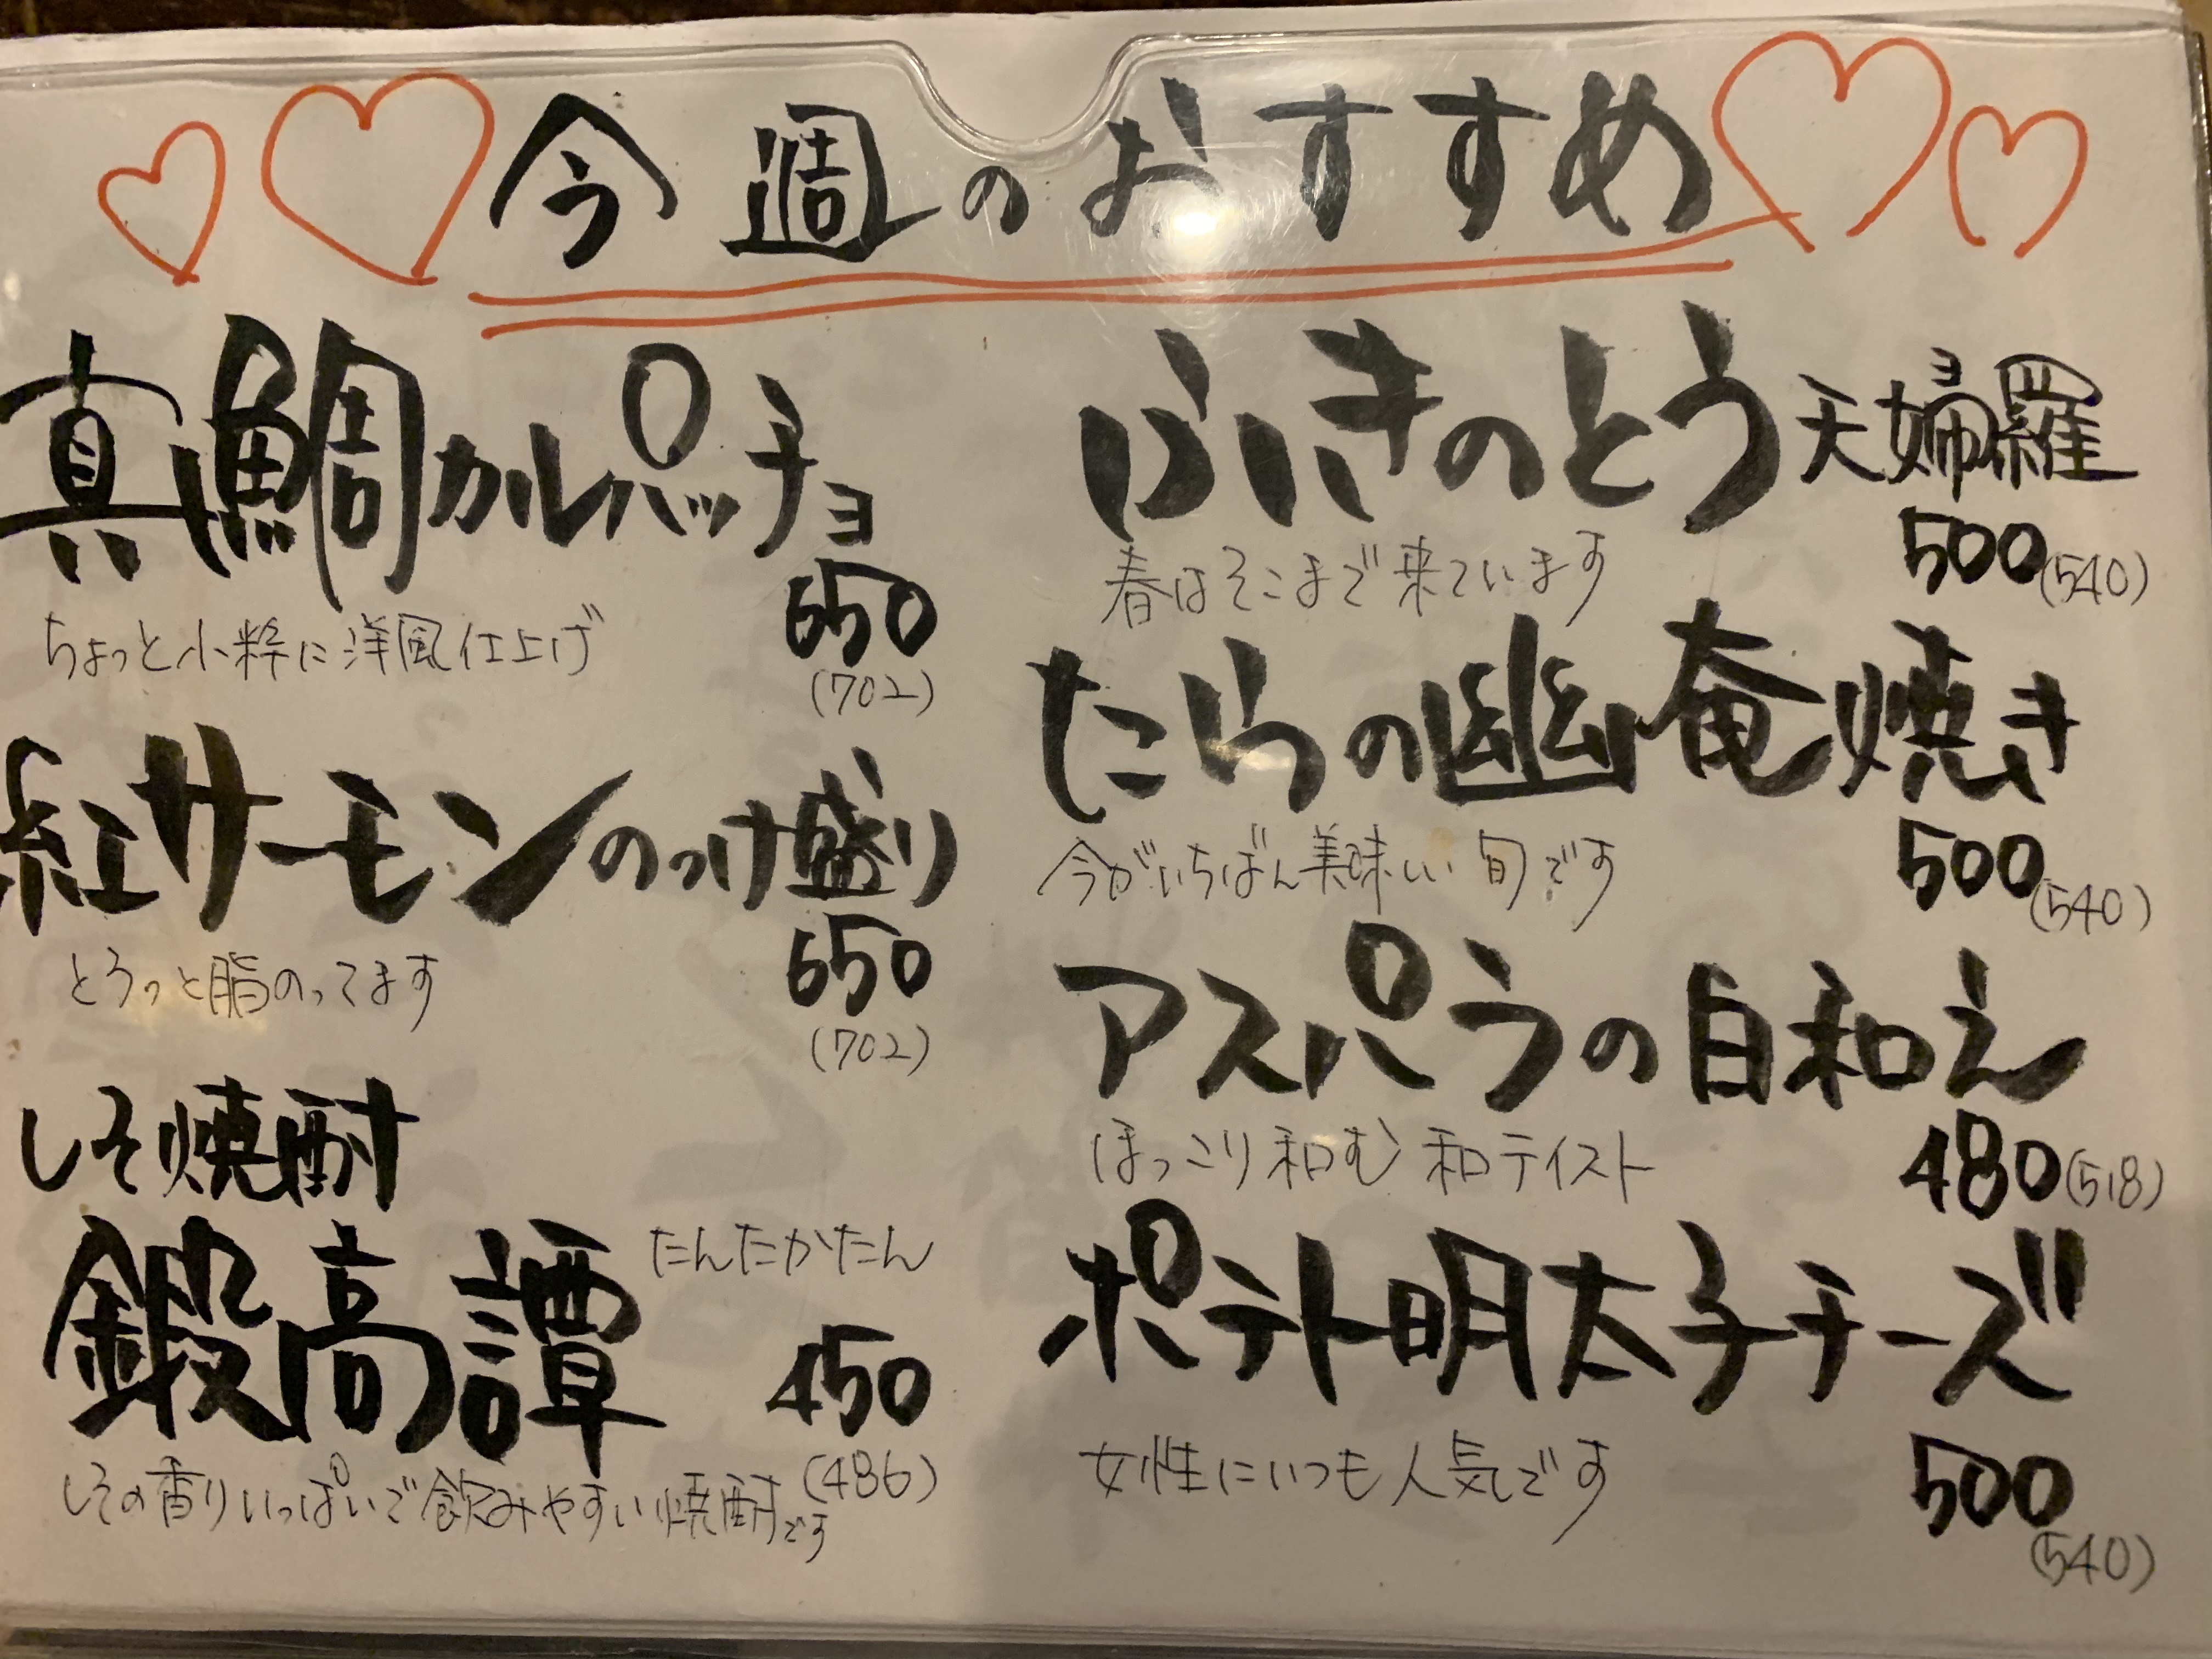 今週のおすすめ
真鯛カルパッチョ
650
ちょっと小粋に洋風仕上げ
(702)
紅サーモンのっけ盛り
650
とろっと脂のってます
(702)
しそ焼酎
鍛高譚 たんたかたん
450
(486)
しその香りいっぱいで飲みやすい焼酎です
ふきのとう天婦羅
500(540)
春はそこまで来ています
たらの幽庵焼き
500(540)
今がいちばん美味しい旬です
アスパラの白和え
480(518)
ほっこり和む 和テイスト
ポテト明太子チーズ
500
女性にいつも人気です
(540)